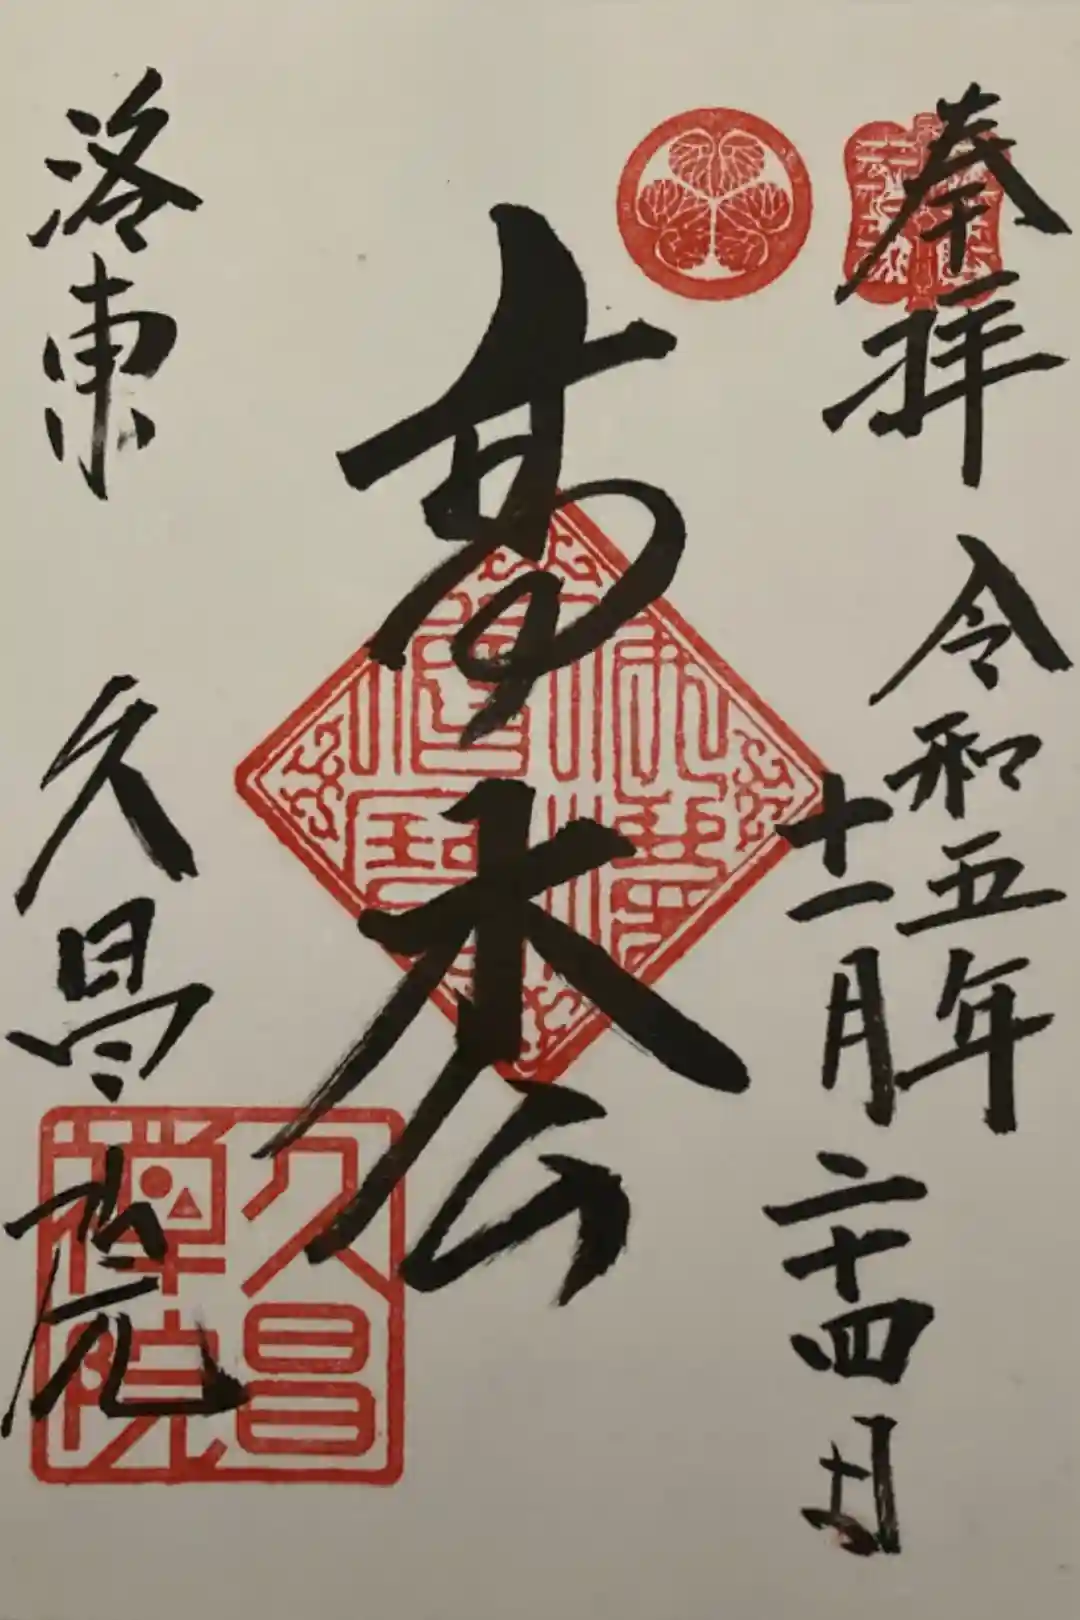 奉拝 令和五年
十一月二十四日
高枩
洛東 久昌院
久昌
禅院